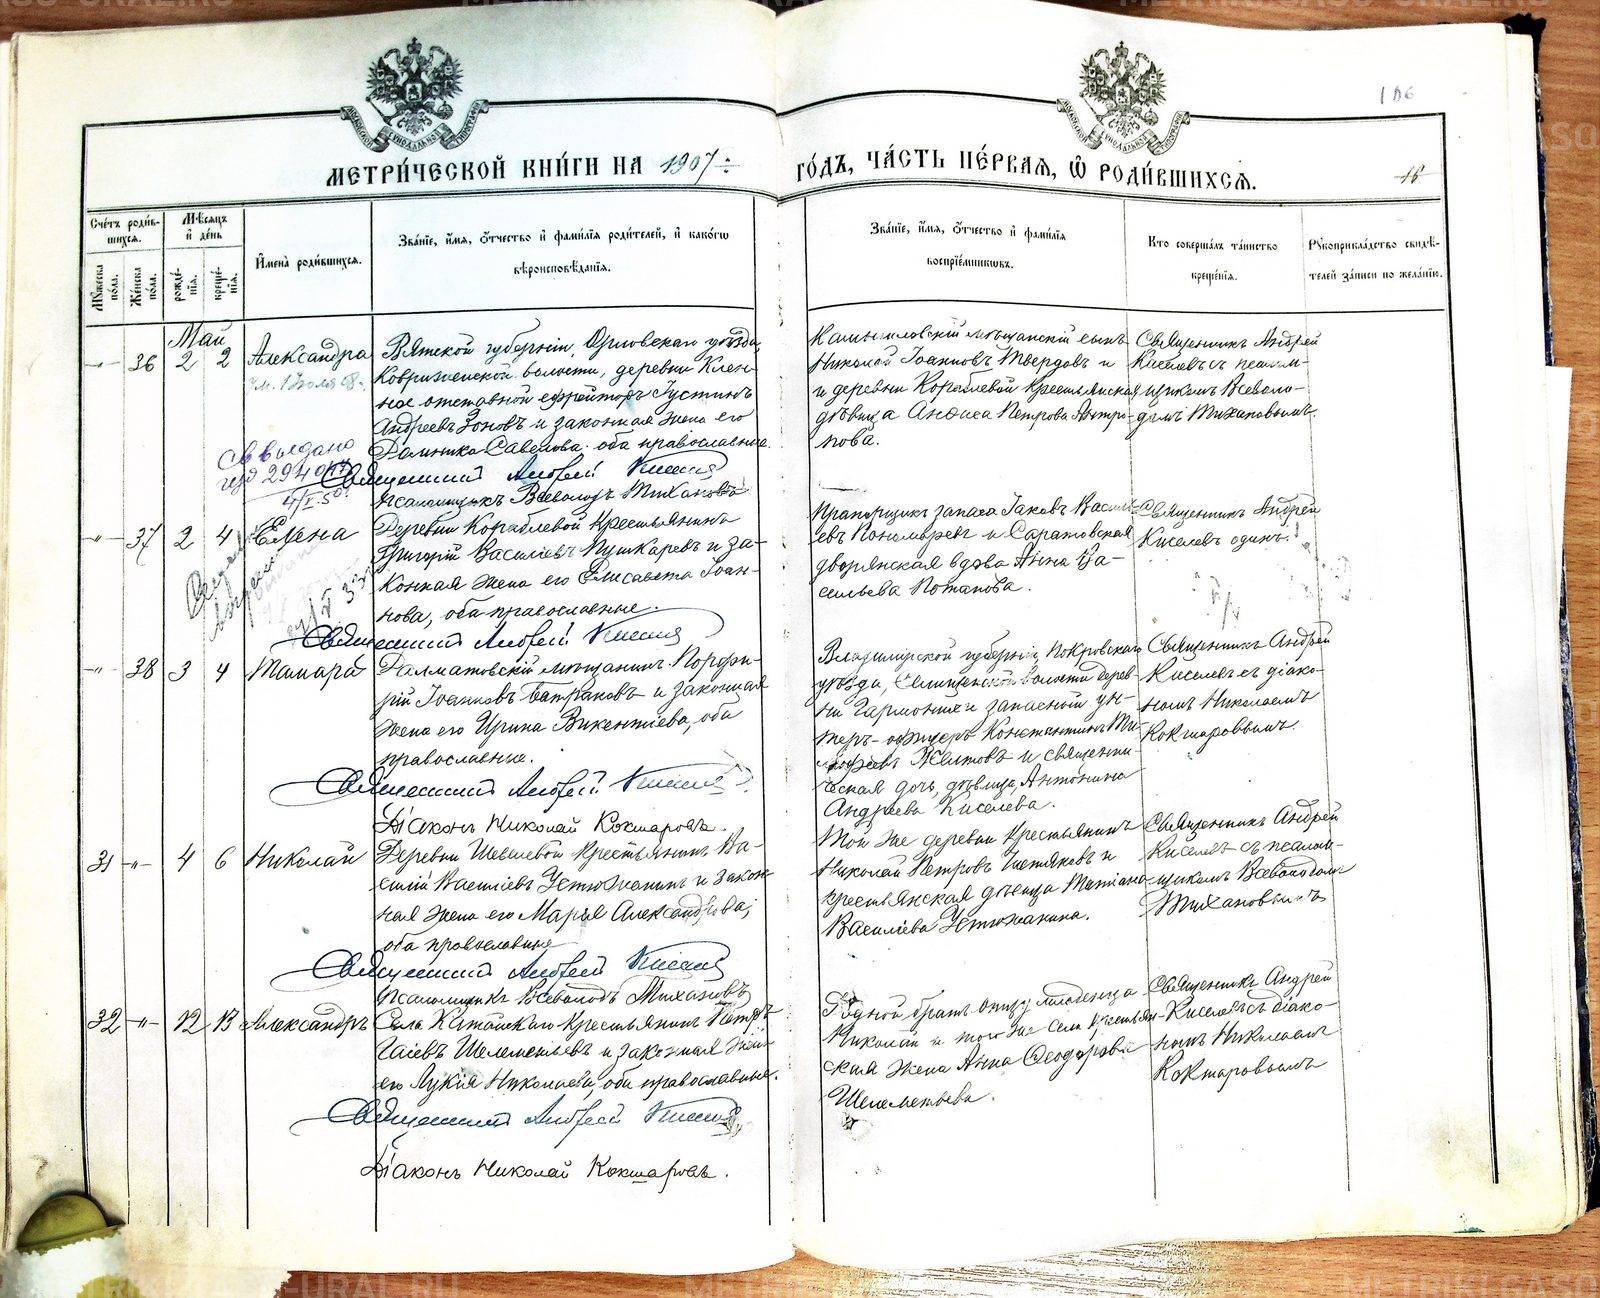 МЕТРИ́ЧЕСКОЙ КНИ́ГИ НА 1907
ГО́ДЪ, ЧА́СТЬ ПЕ́РВАЯ, Ѡ РОДИ́ВШИХСЯ.
106
Сче́тъ роди́в-
шихся.
Мѣ́сяцъ
и де́нь
Мꙋжеска по́ла.
Же́нска по́ла.
рожде́-
нїя.
креще́-
нїя.
Имена̀ роди́вшихся.
Зва́нїе, и́мя, о́тчество и фами́лїя роди́телей, и како́гѡ
вѣроисповѣ́данїя.
Зва́нїе, и́мя, о́тчество и фами́лїя
воспрїе́мникѡвъ.
Кто соверша́лъ та́инство
креще́нїя.
Рꙋкоприкла́дство свидѣ́-
телей за́писи по жела́нїю.
Май
36 2 2 Александра
Вятской губерніи, Орловскаго уѣзда,
волости, деревни Клен-
ное отставной ефрейторъ Іустинъ
Андреевъ Зоновъ и законная жена его
Савелова, оба православные
Священникъ Андрей Киселевъ
Псаломщикъ Всеволодъ Тихановъ
Камышловскій мѣщанскій сынъ
Николай Іоанновъ Твердовъ и
и деревни Кораблевой крестьянская
дѣвица Анфиса Петрова
Священникъ Андрей
Киселевъ съ псалом-
щикомъ Всеволо-
домъ Тихановымъ.
37 2 4 Елена
Деревни Кораблевой крестьянинъ
Григорій Васильевъ Пушкаревъ и за-
конная жена его Елисавета Іоан-
нова, оба православные.
Священникъ Андрей Киселевъ
Прапорщикъ запаса Іаковъ Василь-
евъ Пономаревъ и Саратовская
дворянская вдова Анна Ва-
сильева Потапова.
Священникъ Андрей
Киселевъ одинъ.
38 3 4 Тамара
Далматовскій мѣщанинъ Порфи-
рій Іоанновъ Батраковъ и законная
жена его Ирина Викентіева, оба
православные.
Священникъ Андрей Киселевъ
Діаконъ Николай Кокшаровъ.
Владимірской губерніи, Покровскаго
уѣзда, волости дерев-
ни запасной ун-
теръ-офицеръ Константинъ Ти-
мофеевъ и священни-
ческая дочь, дѣвица, Антонина
Андреева Киселева.
Священникъ Андрей
Киселевъ съ діако-
номъ Николаемъ
Кокшаровымъ.
31 4 6 Николай
Деревни Шевелевой крестьянинъ Ва-
силій Васильевъ Устюжанинъ и закон-
ная жена его Марья Александрова,
оба православные
Священникъ Андрей Киселевъ
Псаломщикъ Всеволодъ Тихановъ
Той же деревни крестьянинъ
Николай Петровъ и
крестьянская дѣвица Татіана
Васильева Устюжанина.
Священникъ Андрей
Киселевъ съ псалом-
щикомъ Всеволодомъ
Тихановымъ
32 12 13 Александръ
Села Катайскаго крестьянинъ Петръ
Шелементьевъ и законная жена
его Лукія Николаева, оба православные.
Священникъ Андрей Киселевъ
Діаконъ Николай Кокшаровъ.
Родной братъ отцу младенца
Николай и того же села крестьян-
ская жена Анна Ѳеодорова
Шелементьева.
Священникъ Андрей
Киселевъ съ діако-
номъ Николаемъ
Кокшаровымъ